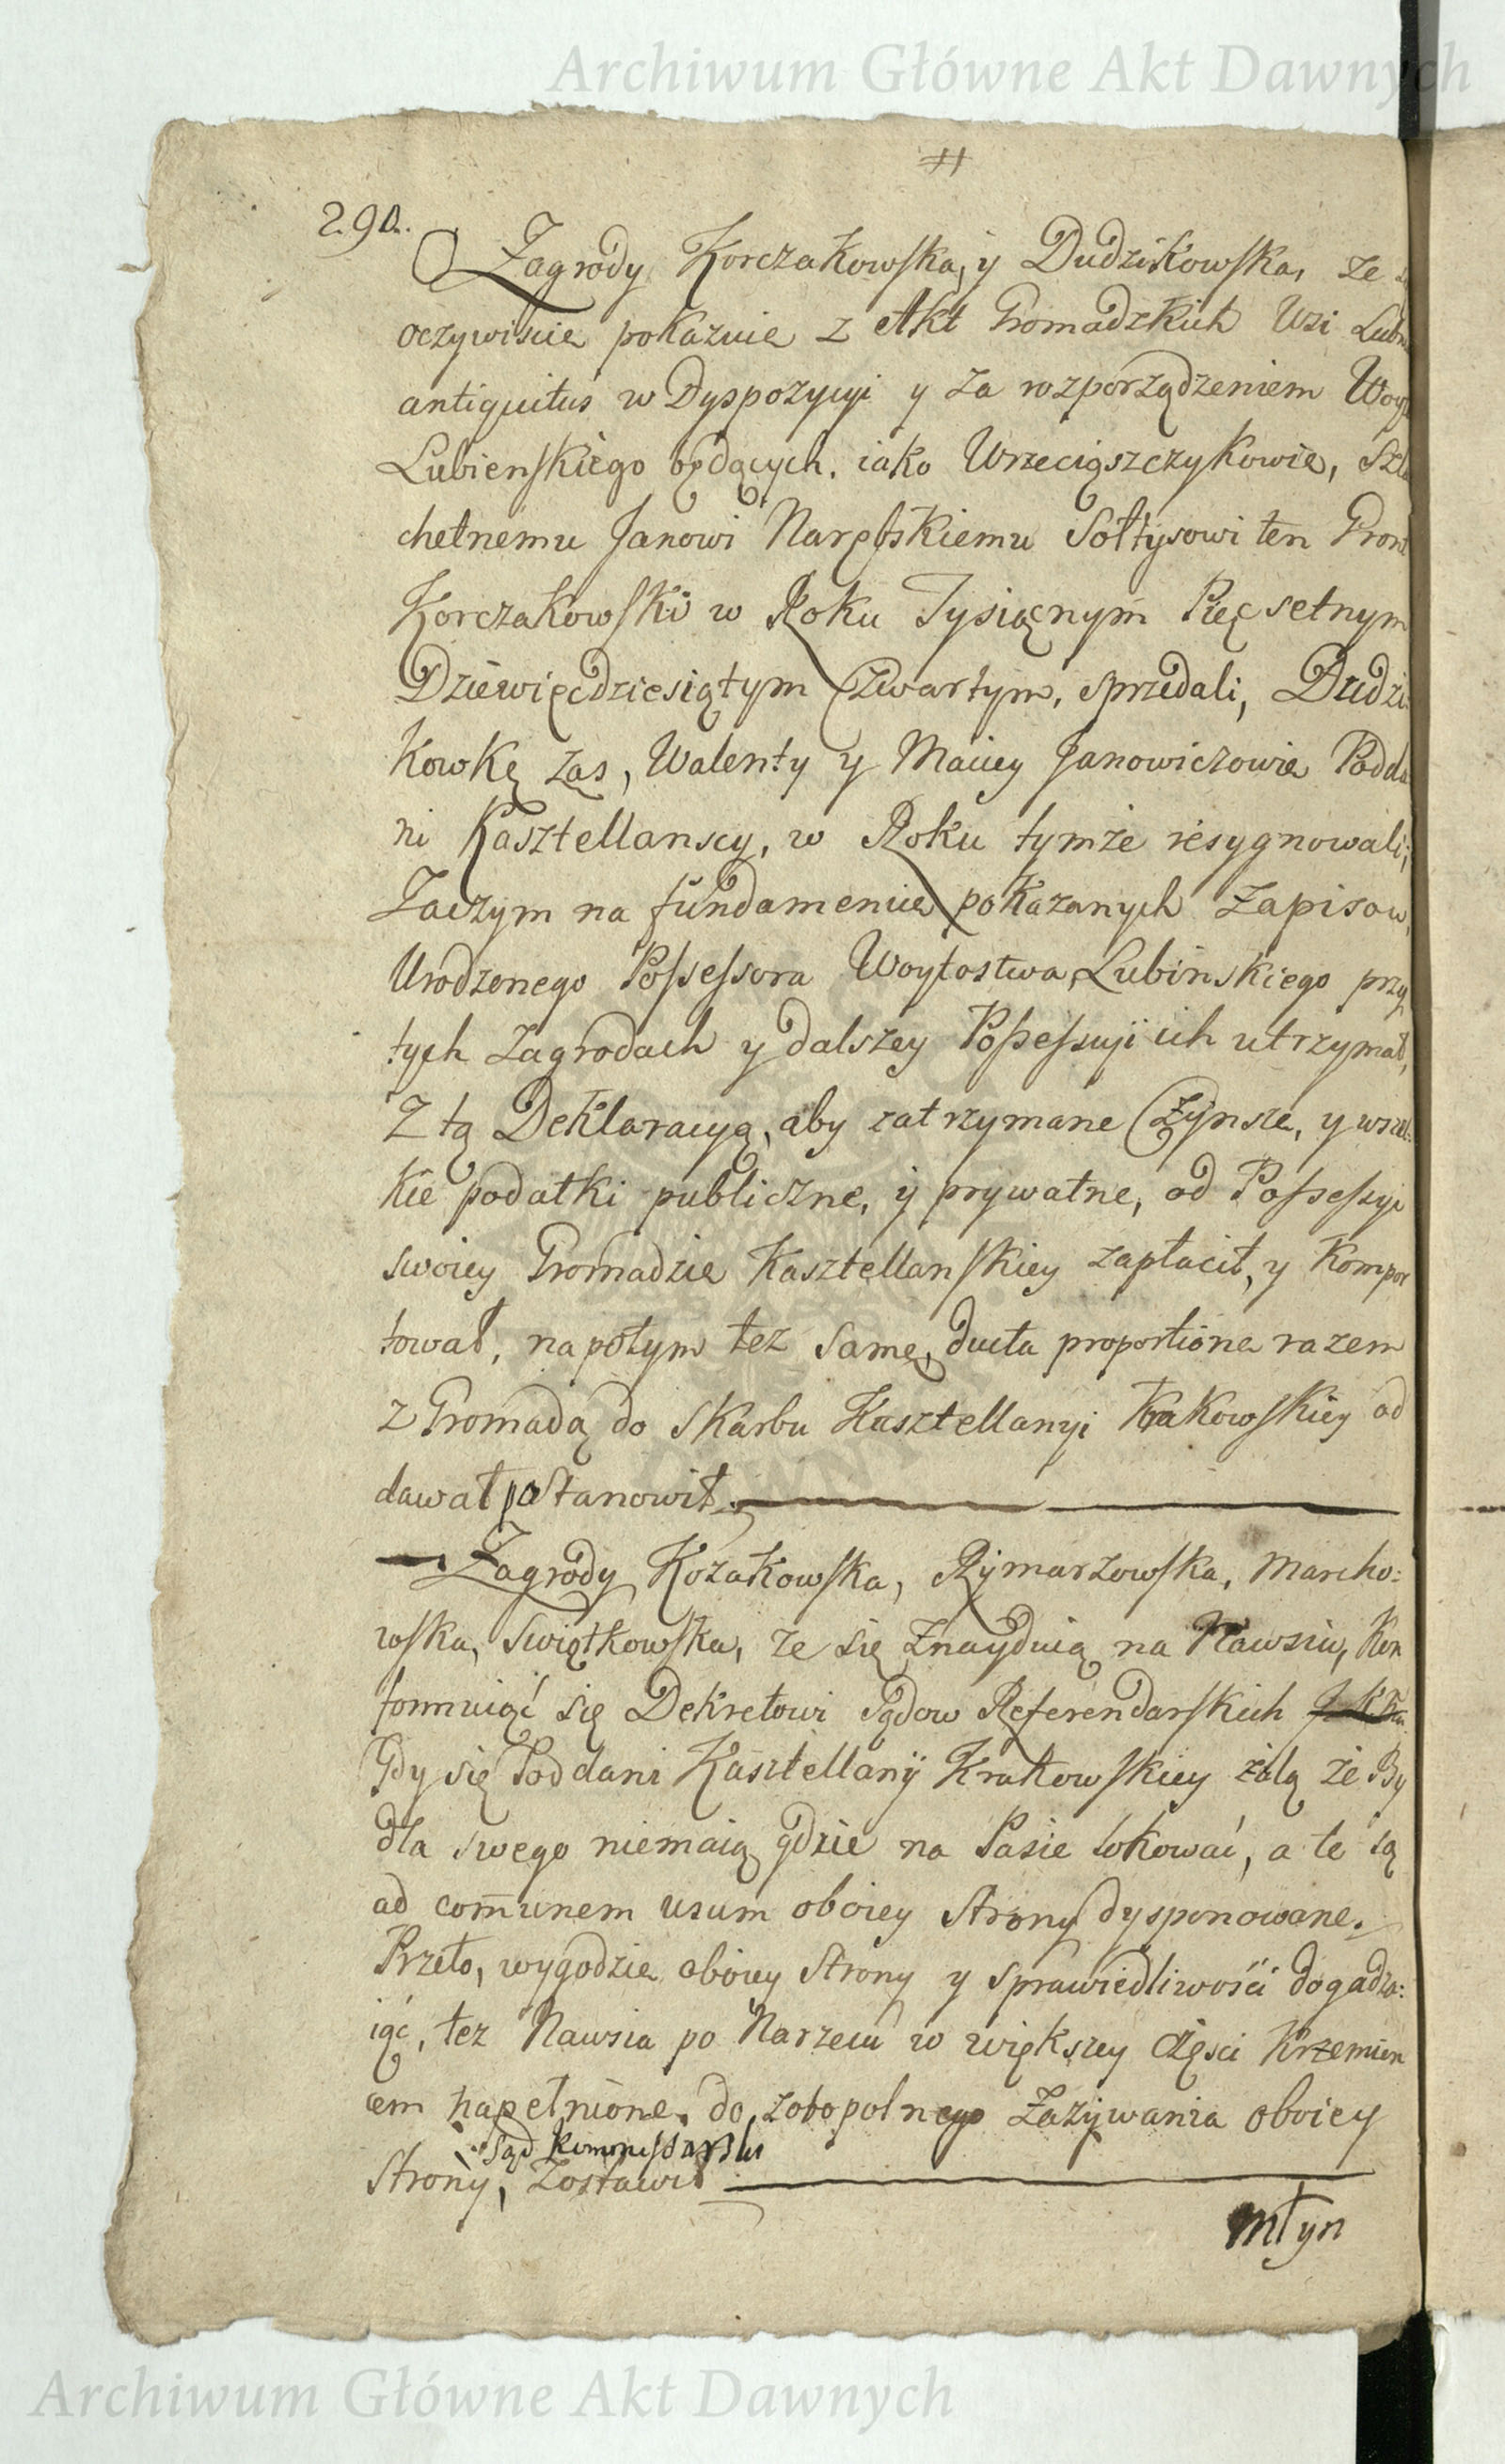 Archiwum Główne Akt Dawnych
290.
Zagrody Korczakowska, y Dudzikowska, ze
oczywiscie pokazuie z Akt Gromadzkich Wsi
antiquitus w Dyspozycyi y za rozporządzeniem
Lubienskiego będących. iako Wrzeciąszczykowie, Szla
chetnemu Janowi Narębskiemu Sołtysowi ten Gront
Korczakowski w Roku Tysiącnym Pięcsetnym
Dziewięcdziesiątym Czwartym, sprzedali, Dudzi
kowkę zas, Walenty y Maciey Janowiczowie Podda
ni Kasztellanscy, w Roku tymże resygnowali;
Zaczym na fundamencie pokazanych Zapisow,
Urodzonego Possessora Woytostwa Lubinskiego przy
tych Zagrodach y dalszey Possessyi ich utrzymał,
Z tą Deklaracyą, aby zatrzymane Czynsze, y wszel:
kie podatki publiczne, y prywatne, od Possessyi
swoiey Gromadzie Kasztellanskiey zapłacił, y Kompor
tował, napotym też same, ducta proportione razem
z Gromadą do Skarbu Kasztellanyi Krakowskiey od
dawał postanowił.
Zagrody Kozakowska, Rymarzowska, Marcho:
wska, Swiątkowska, ze się znayduią na Nawsiu, Kon
formuiąć się Dekretowi Sądow Referendarskich
Gdy się Poddani Kasztellanÿ Krakowskiey żalą że By
dla swego niemaią gdzie na Pasie lokowac, a te są
ad com̄unem usum oboiey Strony dysponowane.
Przeto, wygodzie oboiey Strony y sprawiedliwości dogadza:
iąć, tez Nawsia po Narzeciu w większey Części Krzemien
cem napełnione. do zobopolnego Zażywania oboiey
Sąd Kommissarski
Strony, Zostawił
Młyn
Archiwum Główne Akt Dawnych